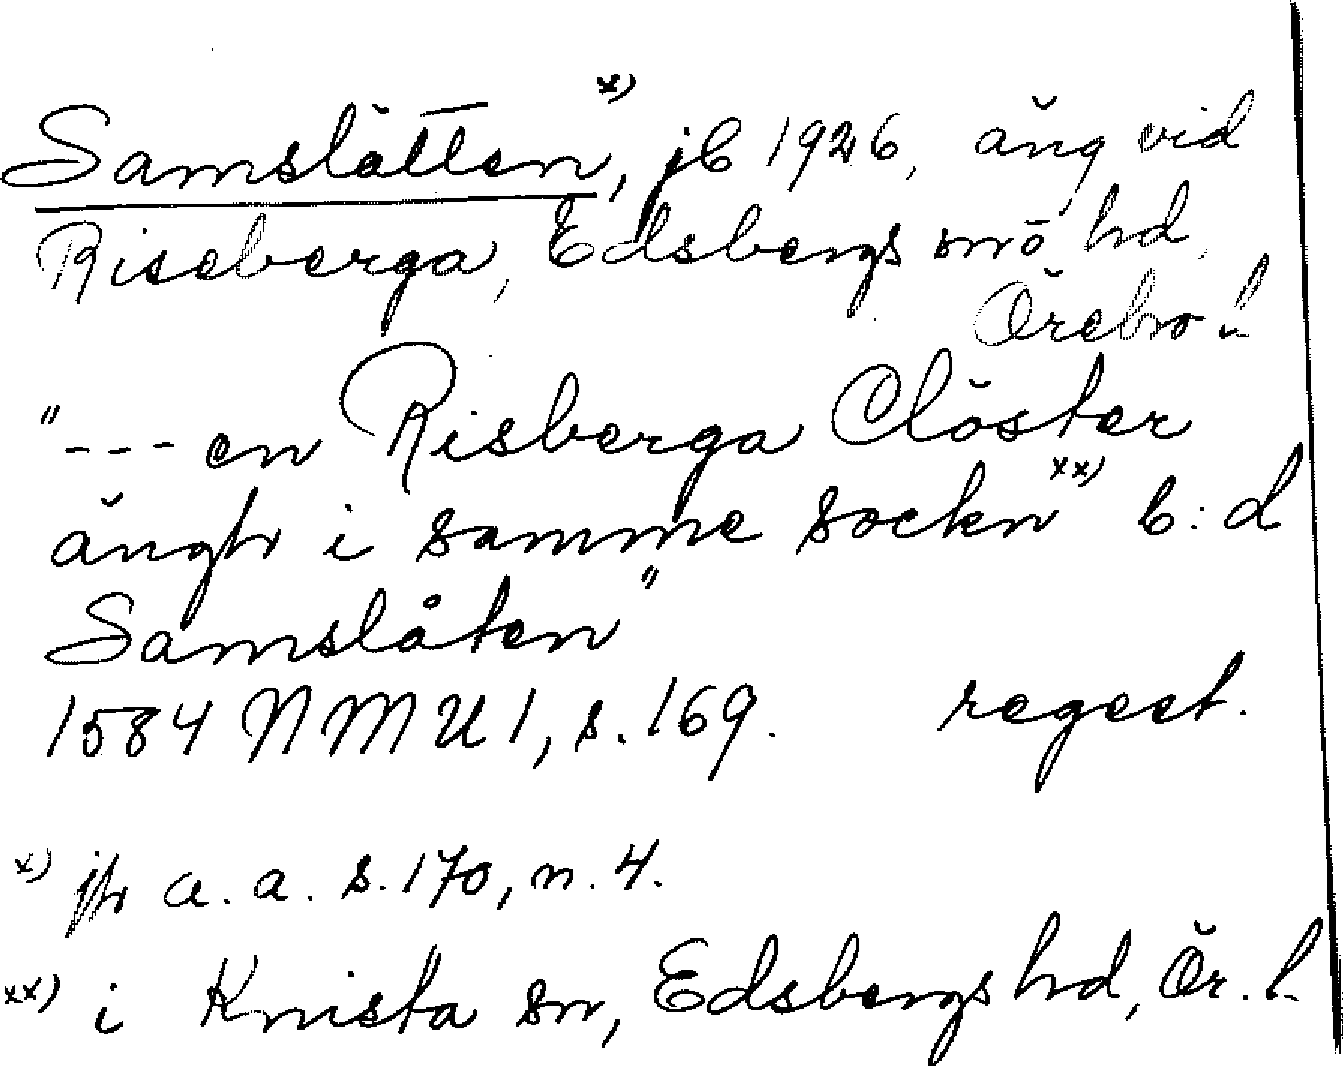 Samslätten, x) jb 1926, äng vid
Riseberga, Edsbergs snö hd,
Örebro l.
"--- en Risberga Clöster
ängh i samme sockn xx) b:d
Samslåten"
1584 NMU 1, s. 169. regest.
x) jfr a. a. s. 170, n. 4.
xx) i Knista sn, Edsbergs hd, Ör. l.